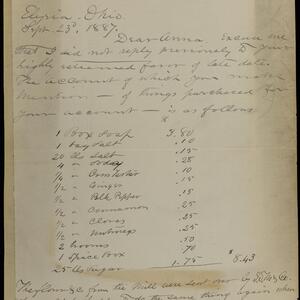 Elyria, Ohio.
Sept. 23d, 1887.
Dear Anna. Excuse me
that I did not reply previously to your
highly esteemed favor of late date.
The account of which you make
mention - of things purchased for
your account - is as follows
$
1 Box Soap 3.80
1 bag Salt .10
20 lbs Salt .15
4 " Soda .28
1/4 " .10
1/2 " Ginger .15
1/2 " Blk Pepper .15
1/2 " Cinnamon .25
1/2 " Cloves .25
1/2 " Nutmegs .50
2 brooms .70
1 Spice Box
25 lbs Sugar 1.75 $ 8.43
from the Mill were sent over by
do the same thing again when